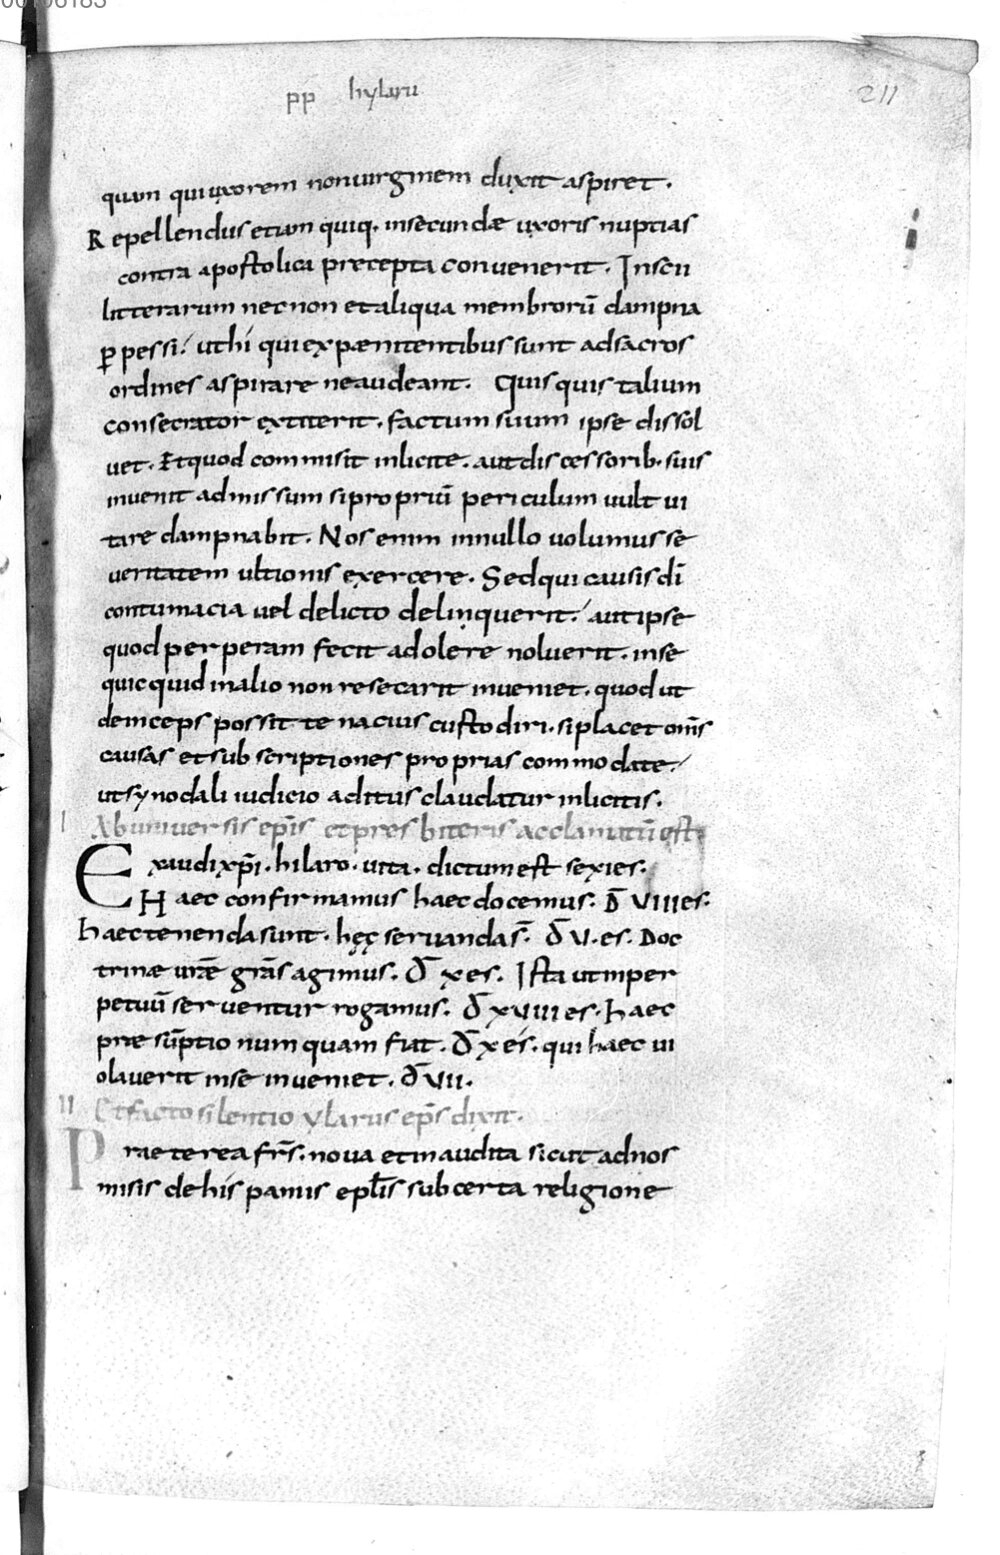 00106183
pp hylarii
211
quam qui uxorem non uirginem duxit aspiret.
Repellendus etiam quiq. in secundae uxoris nuptias
contra apostolica precepta conuenerit. Inscii
litterarum necnon et aliqua membrorū dampna
ꝑpessi. ut hi qui ex paenitentibus sunt ad sacros
ordines aspirare ne audeant. Quisquis talium
consecrator extiterit. factum suum ipse dissol
uet. Et quod commisit inlicite. aut discessorib. suis
inuenit admissum si propriū periculum uult ui
tare dampnabit. Nos enim in nullo uolumus se
ueritatem ultionis exercere. Sed qui causis dī
contumacia uel delicto delinquerit. aut ipse
quod perperam fecit adolere noluerit. in se
quicquid in alio non resecarit inueniet. quod ut
deinceps possit tenacius custodiri. si placet om̄s
causas et subscriptiones proprias commodate.
ut synodali iudicio aditus claudatur inlicitis.
I Ab uniuersis ep̄is et presbiteris acclamatū est
Exaudi xp̄i. hilaro. uita. dictum est sexies.
Haec confirmamus haec docemus. D̄ VIIIes.
Haec tenenda sunt. hęc seruanda s̄. D̄ V.es. Doc
trinae ur̄ae gr̄as agimus. D̄ xes. Ista ut in per
petuū seruentur rogamus. D̄ xVIIIes. Haec
prae sūptio numquam fiat. D̄ xes. qui haec ui
olauerit in se inueniet. D̄ VII.
II Et facto silentio ylarus ep̄s dixit.
Praeterea fr̄s. noua et inaudita sicut ad nos
misis de hispaniis epl̄is sub certa religione